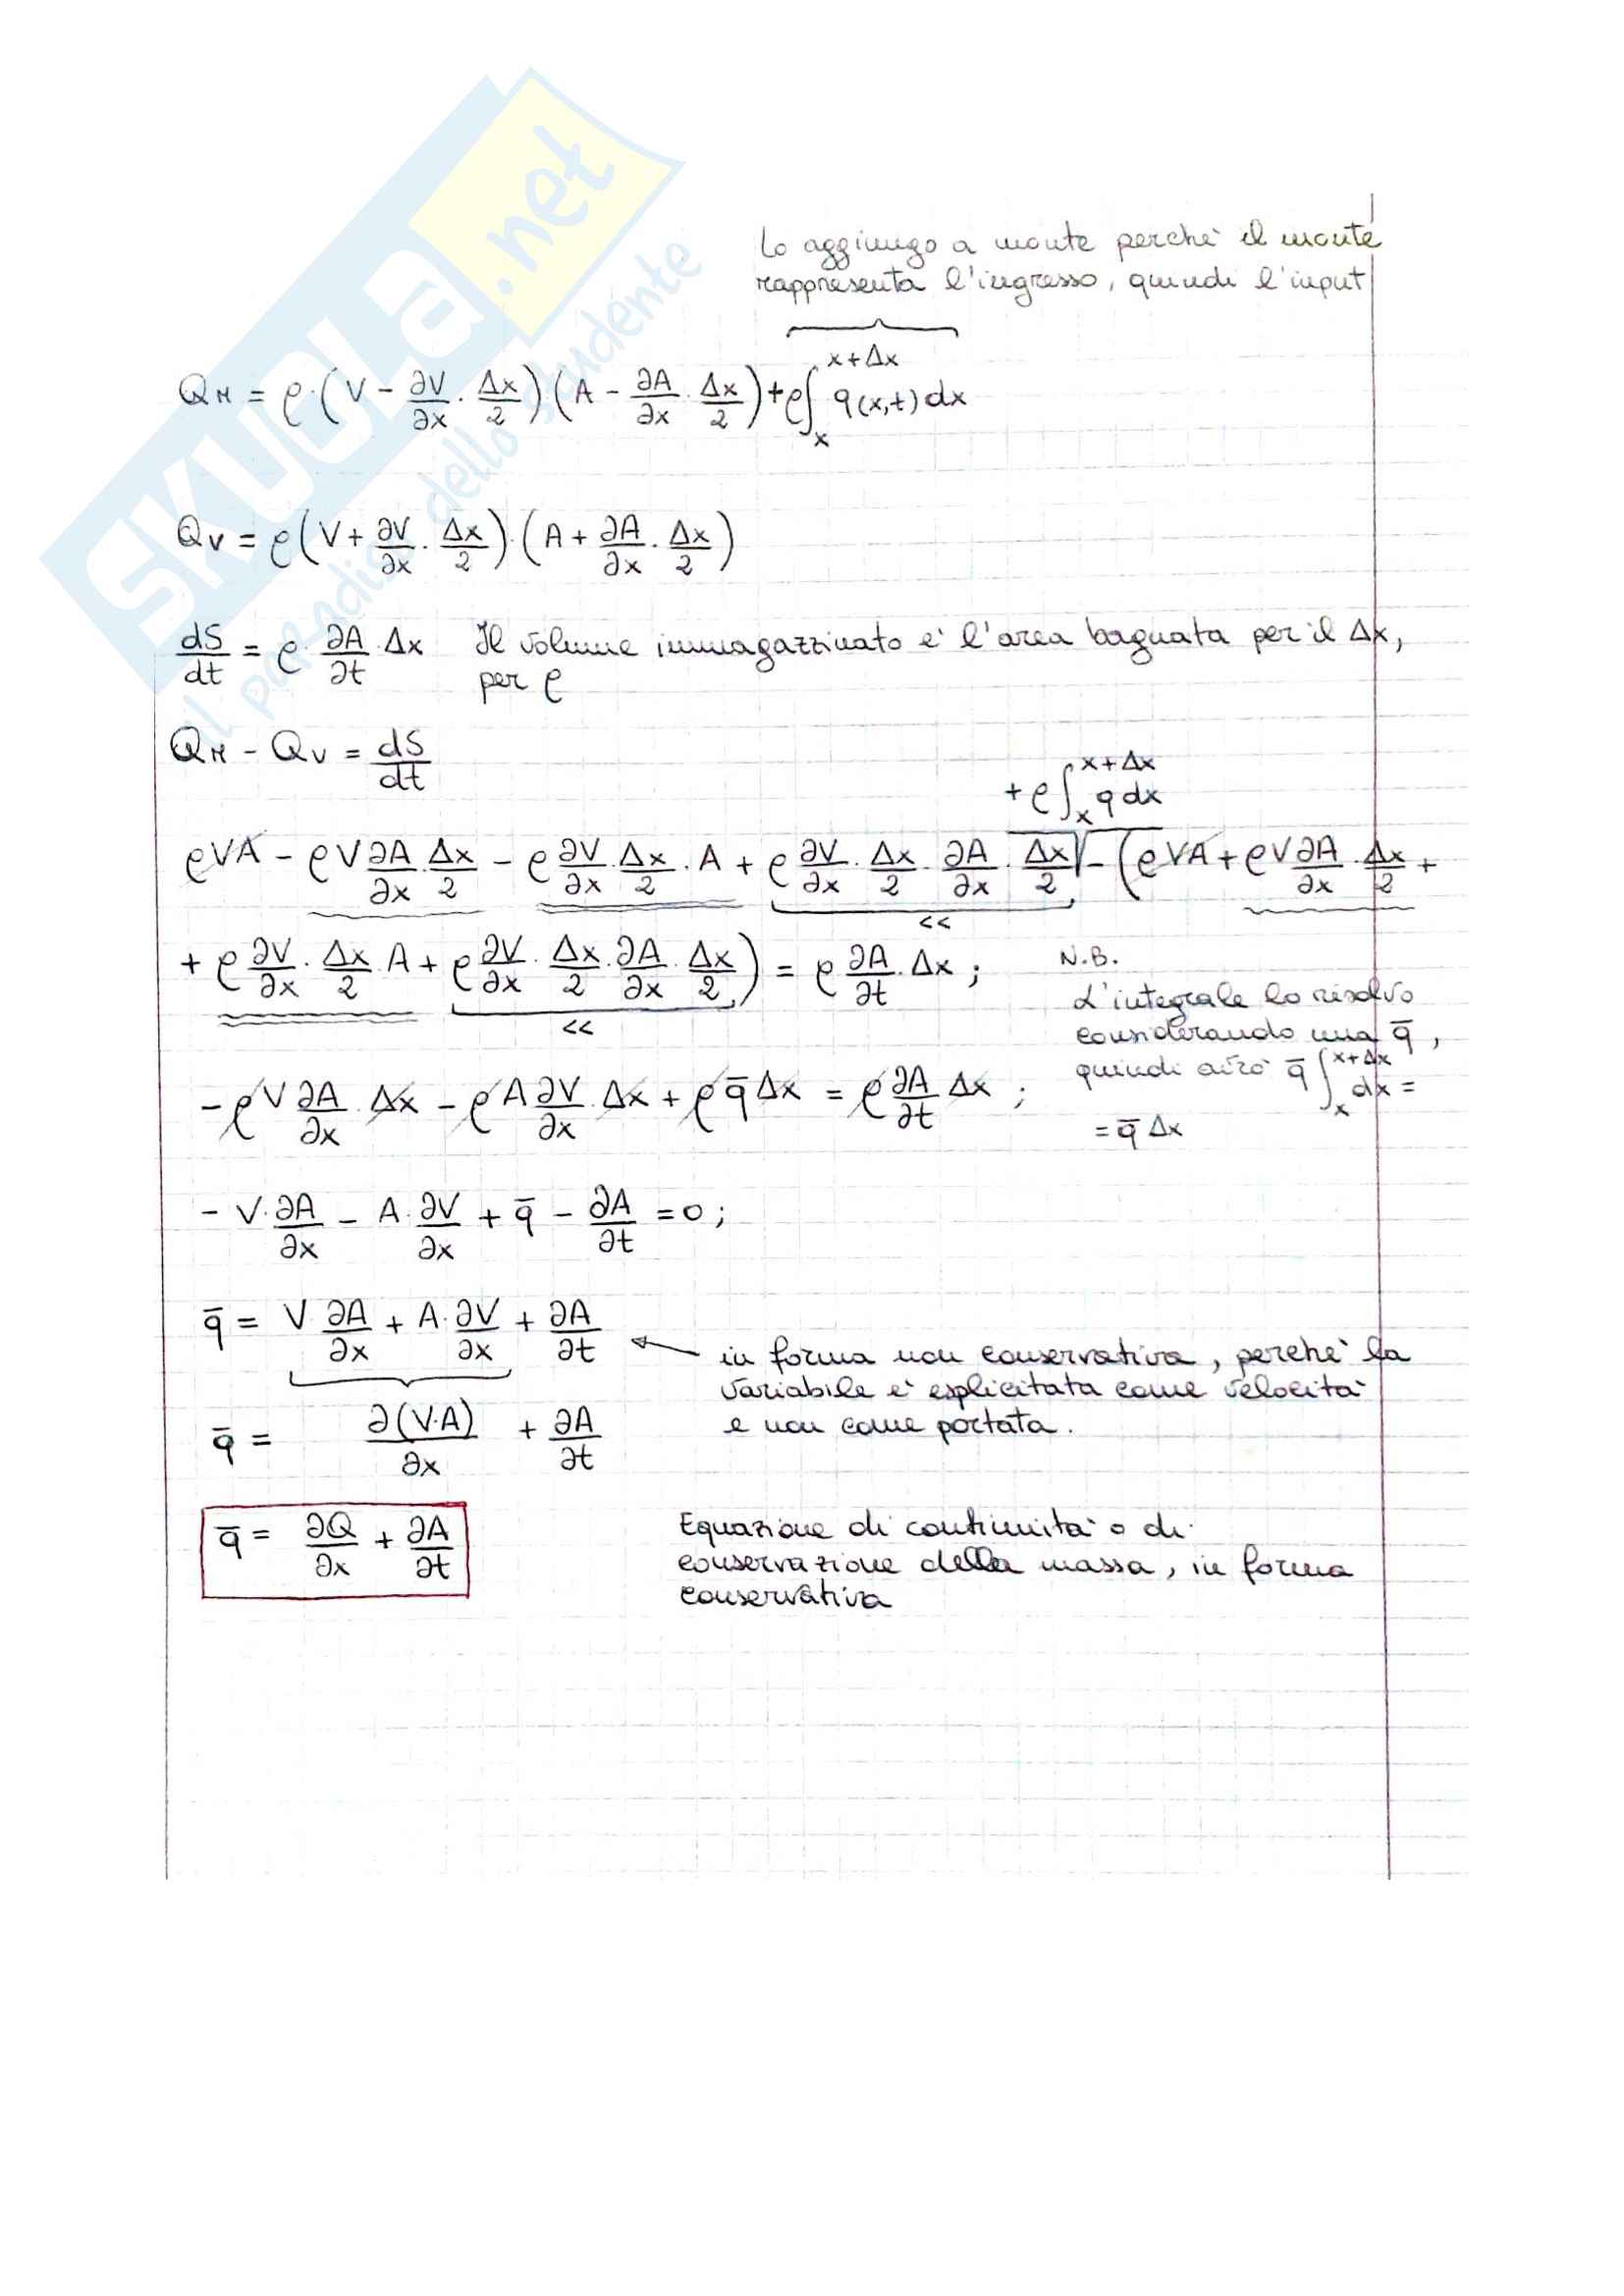 SKUOLA.net
il paradiso dello studente
Lo aggiungo a monte perchè il monte
rappresenta l'ingresso, quindi l'input
Q_M = ρ·(V - ∂V/∂x · Δx/2)(A - ∂A/∂x · Δx/2) + ρ∫_x^{x+Δx} q(x,t) dx
Q_V = ρ(V + ∂V/∂x · Δx/2)·(A + ∂A/∂x · Δx/2)
dS/dt = ρ · ∂A/∂t · Δx Il volume immagazzinato è l'area bagnata per il Δx,
per ρ
Q_M - Q_V = dS/dt
+ ρ∫_x^{x+Δx} q dx
ρVA - ρV ∂A/∂x · Δx/2 - ρ ∂V/∂x · Δx/2 · A + ρ ∂V/∂x · Δx/2 · ∂A/∂x · Δx/2 - (ρVA + ρV ∂A/∂x · Δx/2 +
<<
+ ρ ∂V/∂x · Δx/2 · A + ρ ∂V/∂x · Δx/2 · ∂A/∂x · Δx/2) = ρ ∂A/∂t · Δx ;
<<
N.B.
L'integrale lo risolvo
considerando una q̄,
quindi avrò q̄ ∫_x^{x+Δx} dx =
= q̄ Δx
- ρV ∂A/∂x · Δx - ρA ∂V/∂x · Δx + ρ q̄ Δx = ρ ∂A/∂t Δx ;
- V · ∂A/∂x - A · ∂V/∂x + q̄ - ∂A/∂t = 0 ;
q̄ = V · ∂A/∂x + A · ∂V/∂x + ∂A/∂t
in forma non conservativa, perchè la
variabile è esplicitata come velocità
e non come portata.
q̄ = ∂(V·A)/∂x + ∂A/∂t
q̄ = ∂Q/∂x + ∂A/∂t
Equazione di continuità o di
conservazione della massa, in forma
conservativa